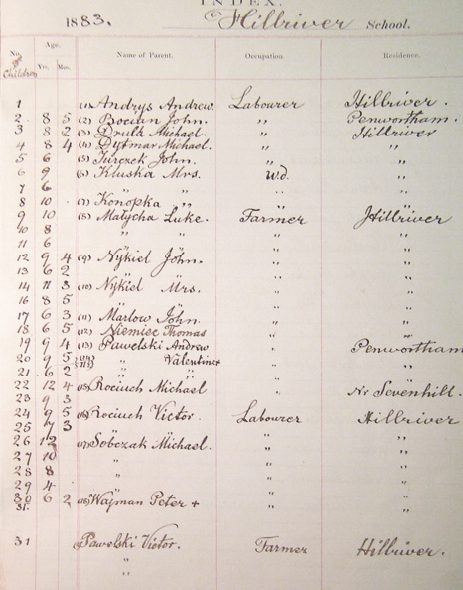 INDEX.
1883. Hillriver School.
No. of Children Age. Yrs. Mos. Name of Parent. Occupation. Residence.
1 (1) Andrys Andrew Labourer Hillriver.
2. 8 5 (2) Bocian John. " Penwortham.
3 8 2 (3) Drula Michael " Hillriver
4 8 4 (4) Dytmar Michael. " "
5 6 (5) Jurczek John. " "
6 9 (6) Kluska Mrs. wd. "
7 6 " " " "
8 10 (7) Konopka " " "
9 10 (8) Malycha Luke. Farmer Hillriver
10 8 " " " "
11 6 " "
12 9 4 (9) Nykiel John. " "
13 6 2 " "
14 11 3 (10) Nykiel Mrs. " "
16 8 5 " "
17 6 3 (11) Marlow John. " "
18 6 5 (12) Niemiec Thomas " "
19 9 4 (13) Pawelski Andrew " Penwortham
20 9 5 (14) " Valentine + " "
21 6 2 " " " "
22 12 4 (15) Rociuch Michael " Nr Sevenhill.
23 9 3
24 9 5 (16) Rociuch Victor. Labourer Hillriver
25 7 3
26 12 (17) Sobczak Michael. " "
27 10 " " "
28 8 " " "
29 4 " "
30 6 2 (18) Wajman Peter + " "
31.
31 Pawelski Victor. Farmer Hillriver.
"
"